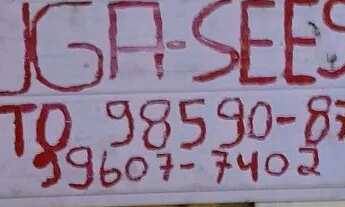 UGA-SEES
TO 98590-87
99607-7402